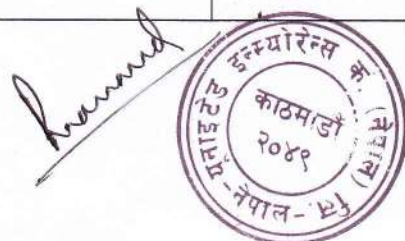 यूनाइटेड इन्स्योरेन्स कं. (नेपाल) लि.
काठमाडौं
२०४९
-नेपाल-